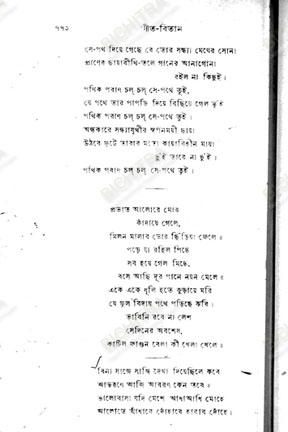 ৭৭২ গীত-বিতান
সে-পথ দিয়ে গেছে রে তোর সন্ধ্যা মেঘের সোনা
প্রাণের ছায়াবীথি-তলে গানের আনাগোনা
রইল না কিছুই।
পথিক পরাণ চল্ চল্ সে-পথে তুই,
যে পথে তার পাপড়ি দিয়ে বিছিয়ে গেল ভুঁই
পথিক পরাণ চল্ চল্ সে-পথে তুই।
অন্ধকারে সন্ধ্যাযূথীর স্বপনময়ী ছায়া
উঠবে ফুটে তারার মতো কায়াবিহীন মায়া
ছুঁই তারে না ছুঁই।
পথিক পরাণ চল্ চল্ সে-পথে তুই।
প্রভাত আলোরে মোর
কাঁদায়ে গেলে,
মিলন মালার ডোর ছিঁড়িয়া ফেলে॥
পড়ে যা রহিল পিছে
সব হয়ে গেল মিছে,
বসে আছি দূর পানে নয়ন মেলে॥
একে একে ধূলি হতে কুড়ায়ে মরি
যে ফুল বিদায় পথে পড়িছে ঝরি।
ভাবিনি রবে না লেশ
সেদিনের অবশেষ,
কাটিল ফাগুন বেলা কী খেলা খেলে॥
বিনা সাজে সাজি দেখা দিয়েছিলে কবে
আভরণে আজি আবরণ কেন তবে॥
ভালোবাসা যদি মেশে আধাআধি মোহে
আলোতে আঁধারে দোঁহারে হারাব দোঁহে।